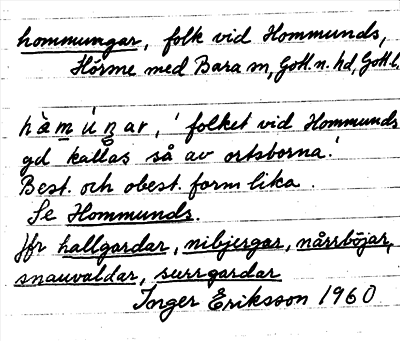 hommungar, folk vid Hommunds,
Hörsne med Bara sn, Gotl. n. hd, Gotl.l.
hàmúnar, 'folket vid Hommunds
gd kallas så av ortsborna.'
Best. och obest. form lika.
Se Hommunds.
Jfr hallgardar, nibjergar, nårrböjar,
snauvaldar, surrgardar
Inger Eriksson 1960